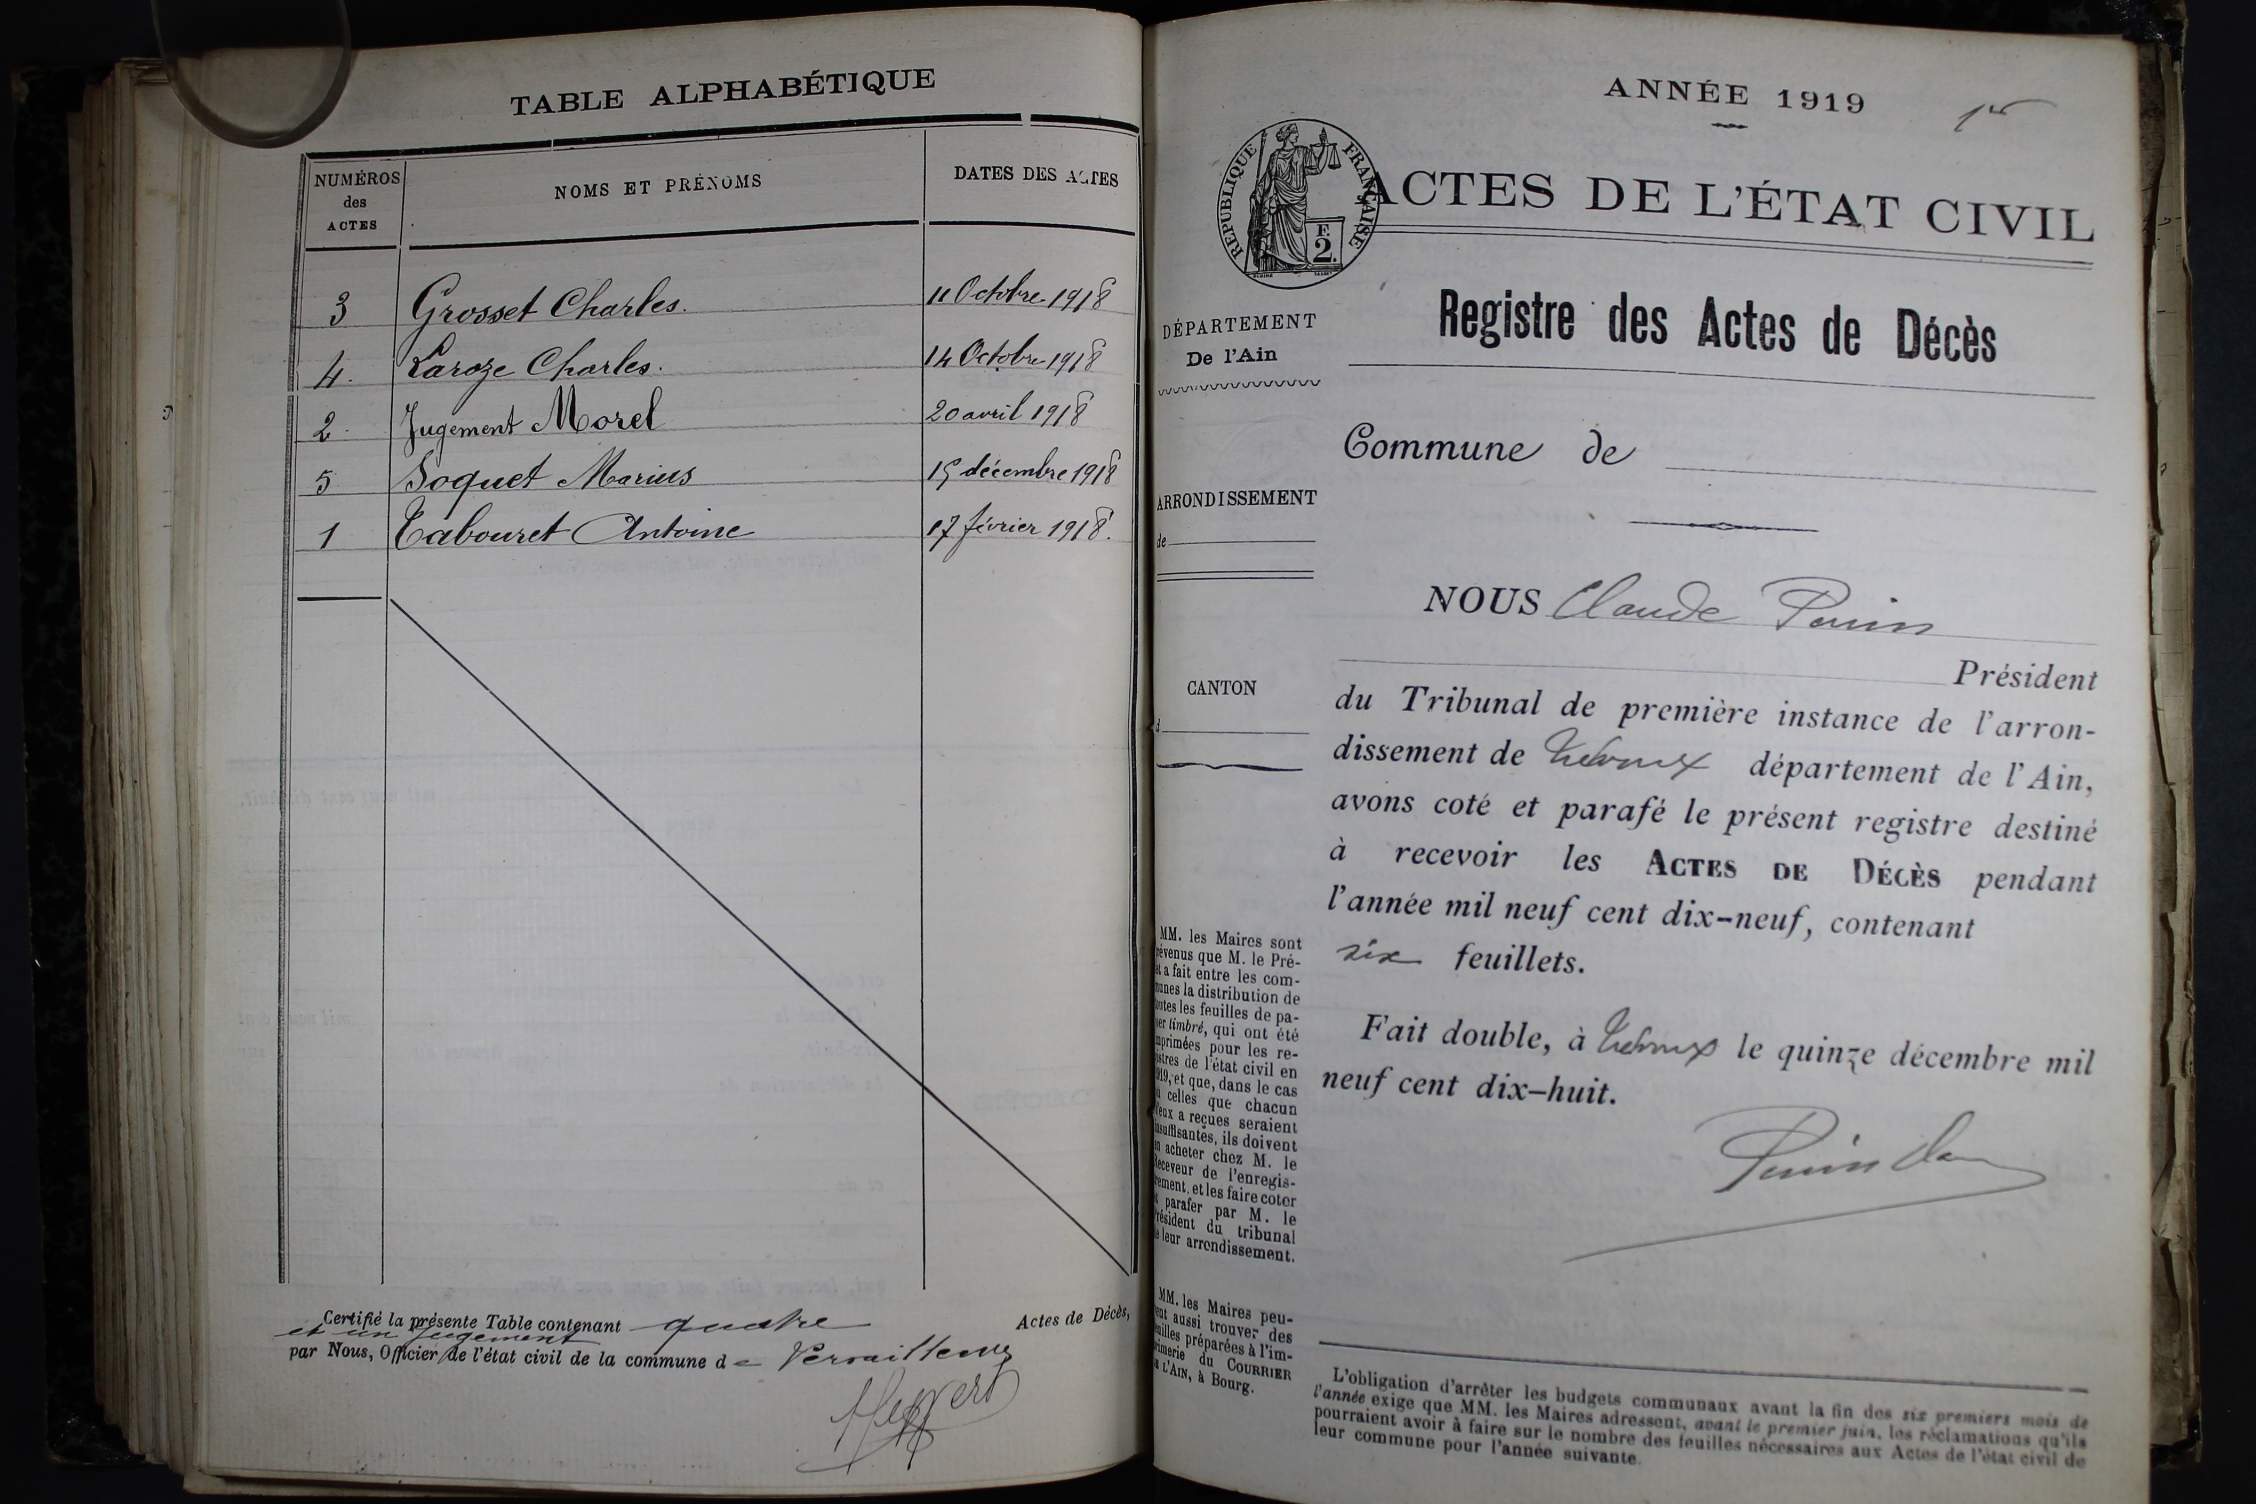 TABLE ALPHABÉTIQUE
NUMÉROS des ACTES
NOMS ET PRÉNOMS
DATES DES ACTES
3 Grosset Charles. 11 Octobre 1918
4. Laroze Charles. 14 Octobre 1918
2. Jugement Morel 20 avril 1918
5 Soquet Marius 15 décembre 1918
1 Tabouret Antoine 17 février 1918.
Certifié la présente Table contenant quatre Actes de Décès,
et un jugement
par Nous, Officier de l'état civil de la commune de
ANNÉE 1919
1er
RÉPUBLIQUE FRANÇAISE
F.
2.
ACTES DE L'ÉTAT CIVIL
DÉPARTEMENT
De l'Ain
ARRONDISSEMENT
de
CANTON
d
MM. les Maires sont
prévenus que M. le Pré-
et a fait entre les com-
munes la distribution de
toutes les feuilles de pa-
pier timbré, qui ont été
imprimées pour les re-
gistres de l'état civil en
1919, et que, dans le cas
où celles que chacun
d'eux a reçues seraient
insuffisantes, ils doivent
en acheter chez M. le
Receveur de l'enregis-
trement, et les faire coter
et parafer par M. le
Président du tribunal
de leur arrondissement.
MM. les Maires peu-
vent aussi trouver des
feuilles préparées à l'im-
primerie du COURRIER
DE L'AIN, à Bourg.
Registre des Actes de Décès
Commune de
NOUS Claude Perrin
Président
du Tribunal de première instance de l'arron-
dissement de Trévoux département de l'Ain,
avons coté et parafé le présent registre destiné
à recevoir les ACTES DE DÉCÈS pendant
l'année mil neuf cent dix-neuf, contenant
six feuillets.
Fait double, à Trévoux le quinze décembre mil
neuf cent dix-huit.
L'obligation d'arrêter les budgets communaux avant la fin des six premiers mois de
l'année exige que MM. les Maires adressent, avant le premier juin, les réclamations qu'ils
pourraient avoir à faire sur le nombre des feuilles nécessaires aux Actes de l'état civil de
leur commune pour l'année suivante.